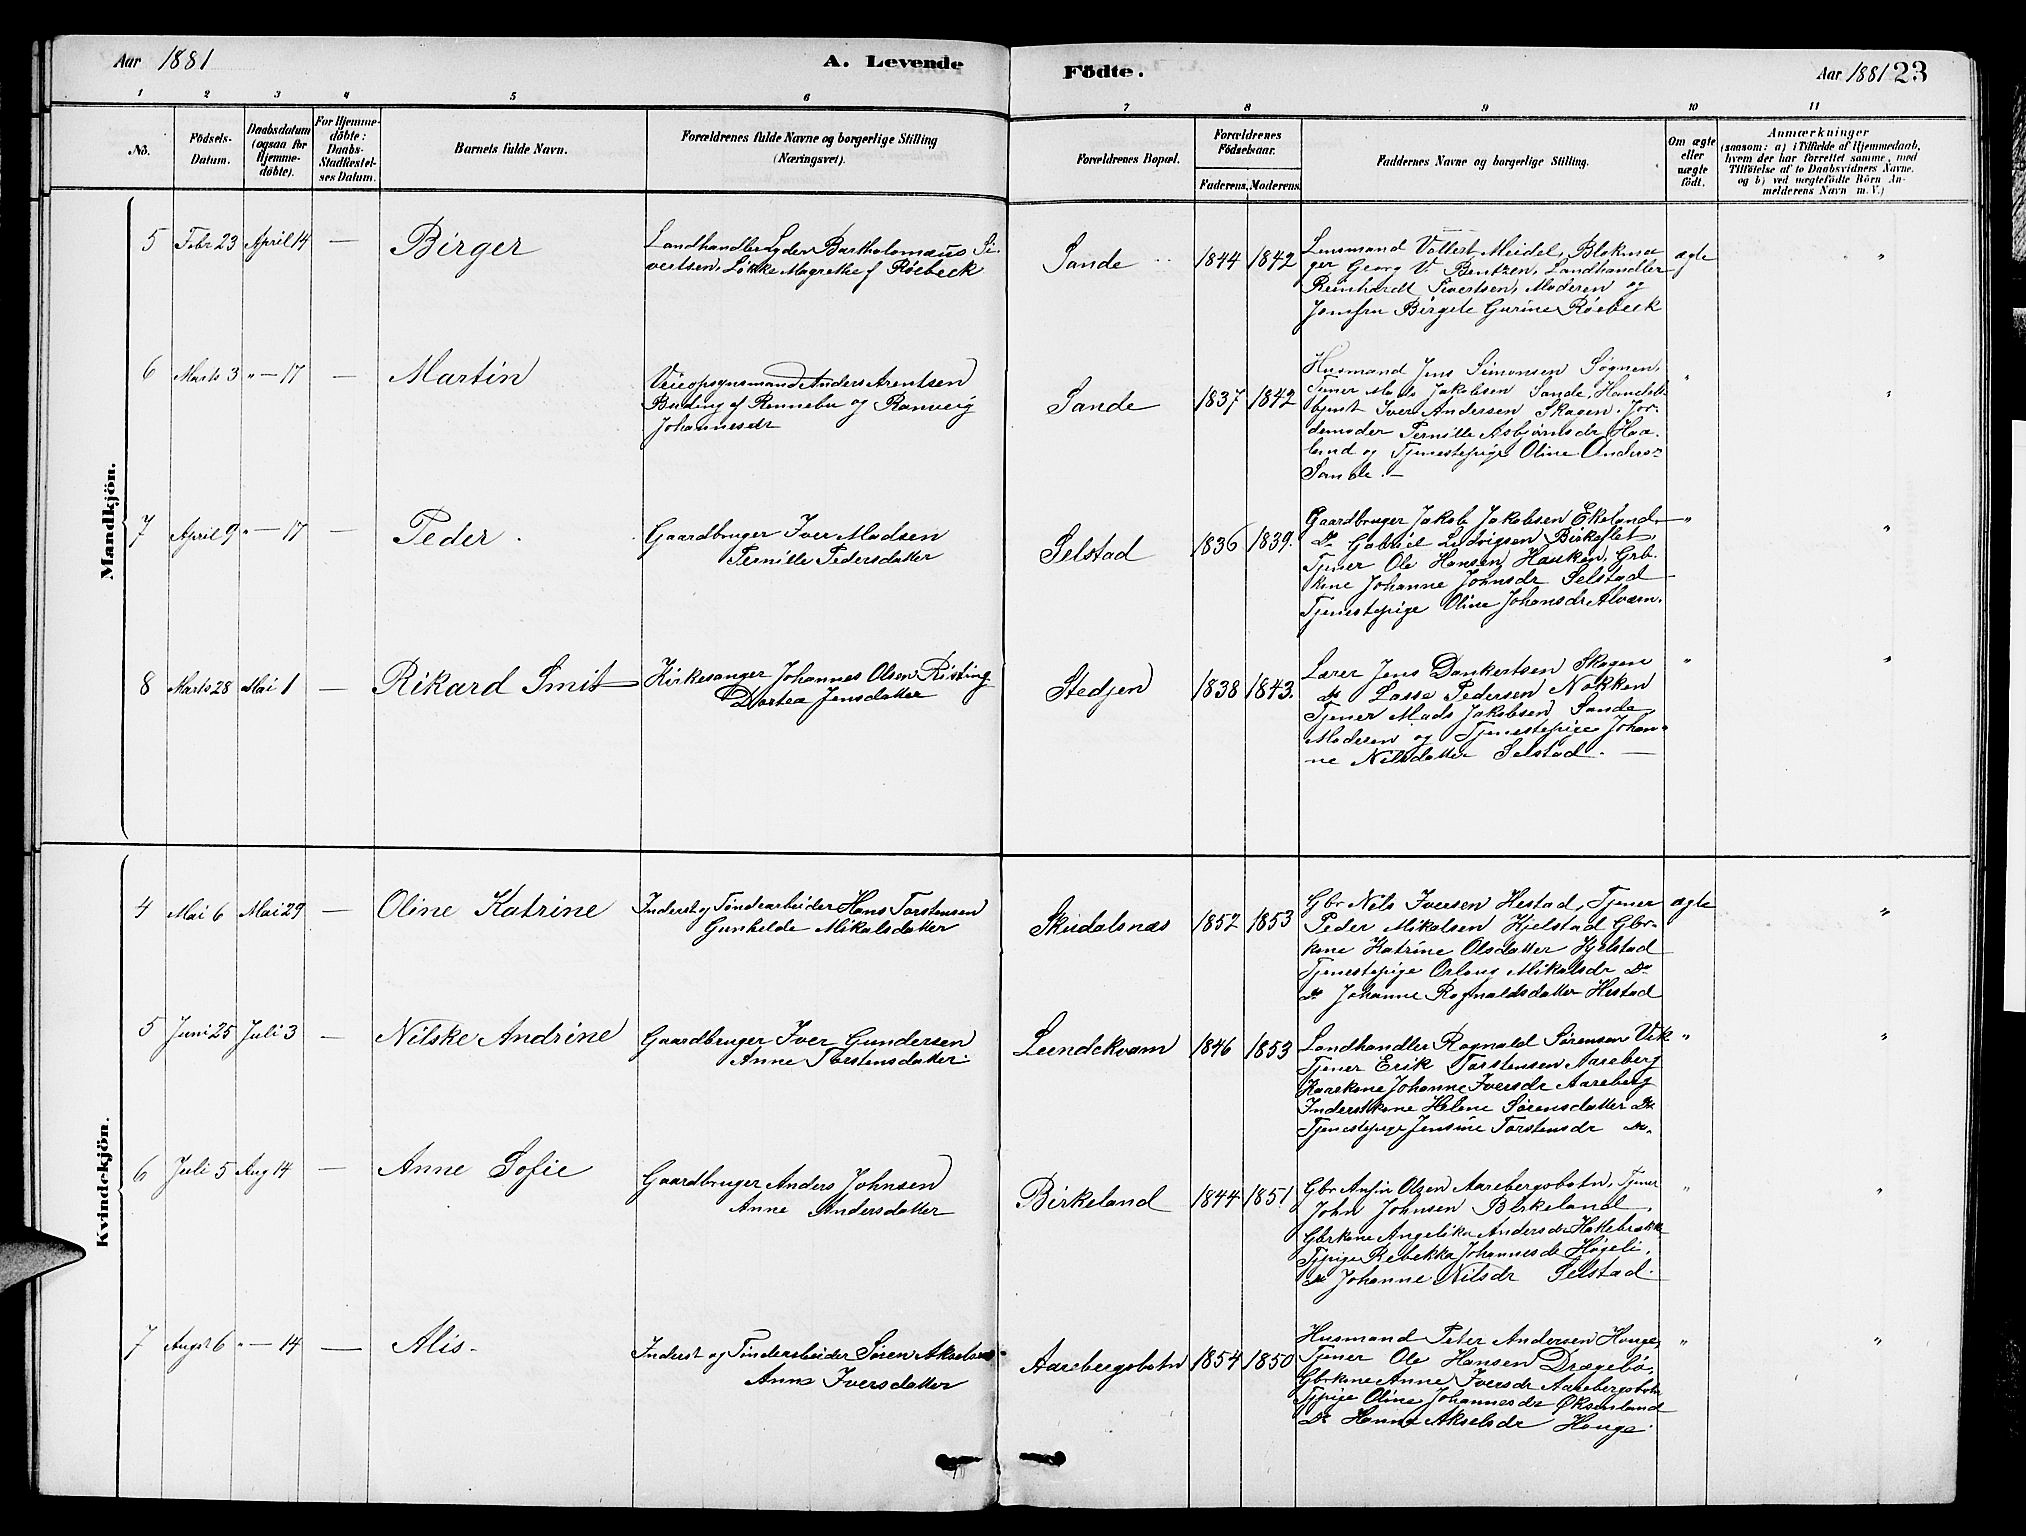 Aar 1881
A. Levende
Födte.
Aar 1881 23
1 2 3 4 5 6 7 8 9 10 11
No.
Födsels-
Datum.
Daabsdatum
(ogsaa for
Hjemme-
döbte).
For Hjemme-
döbte:
Daabs-
Stadfæstel-
ses Datum.
Barnets fulde Navn.
Forældrenes fulde Navne og borgerlige Stilling
(Næringsvei).
Forældrenes Bopæl.
Forældrenes
Födselsaar.
Faderens. Moderens.
Faddernes Navne og borgerlige Stilling.
Om ægte
eller
uægte
födt.
Anmærkninger
(saasom: a) i Tilfælde af Hjemmedaab,
hvem der har forrettet samme, med
Tilföielse af to Daabsvidners Navne.
og b) ved uægtefödte Börn An-
melderens Navn m. V.)
Mandkjön.
5 Febr 23 April 14 — Birger
Landhandler Lyder Bartholomæus Si-
vertsen, Løkke Magrethe f Røebeck
Sande 1844 1842
Lensmand Vollert Meidel, Blokma
ger Georg V. Bentzen, Landhandler
Reinhardt Sivertsen, Moderen og
Jomfru Birgete Gurine Røebeck
ægte "
6 Marts 3 " — 17 — Martin
Veiopsynsmand Anders Arentsen
Buding af Rennebu og Ranveig
Johannesdr
Sande 1837 1842
Husmand Jens Simonsen Søgnen,
Tjener Mads Jakobsen Sande, Handels
btjent Iver Andersen Skagen, Jor-
demoder Pernille Asbjørnsdr Haa-
land og Tjenestepige Oline Anders-
Sande. —
" "
7 April 9 " — 17 — Peder.
Gaardbruger Iver Madsen
Pernille Pedersdatter
Selstad 1836 1839.
Gaardbruger Jakob Jakobsen Ekeland,
Do Gabriel Ludvigsen Birkeflet,
Tjener Ole Hansen Hauken, Grb.
kone Johanne Johnsdr Selstad
Tjenestepige Oline Johansdr Alværn.
" "
8 Marts 28 Mai 1 — Rikard Smit
Kirkesanger Johannes Olsen Risting
Dortea Jensdatter
Stedjen 1838 1843.
Lærer Jens Dankertsen Skagen
Do Lasse Pedersen Nokken
Tjener Mads Jakobsen Sande,
Moderen og Tjenestepige Johan-
ne Nilsdatter Selstad. —
" "
Kvindekjön.
4 Mai 6 Mai 29 — Oline Katrine
Inderst og Tøndearbeider Hans Torstensen
Gunhelde Mikalsdatter
Skudalsnæs 1852 1853
Gbr Nils Iversen Hestad, Tjener
Peder Mikalsen Hjelstad Gbr-
kone Katrine Olsdatter Hjelstad
Tjenestepige Orlaug Mikalsdr Do
Do Johanne Ragnaldsdatter Hestad
ægte "
5 Juni 25 Juli 3 — Nilske Andrine
Gaardbruger Iver Gundersen
Anne Torstensdatter.
Lundekvam 1846 1853
Landhandler Ragnald Sørensen Vik
Tjener Erik Torstensen Aareberg
Kaarkone Johanne Iversdr Aareberg
Inderstkone Helene Sørensdatter Do
Tjenestepige Jensine Torstensdr Do.
" "
6 Juli 5 Aug 14 — Anne Sofie
Gaardbruger Anders Johnsen
Anne Andersdatter
Birkeland 1844 1851
Gbr Anfin Olsen Aarebergsbotn, Tjener
John Johnsen Birkeland,
Gbrkone Angelika Andersdr Hattebrække
Tjpige Rebekka Johannesdr Høgeli,
Do Johanne Nilsdr Selstad.
" "
7 Augst 6 " — 14 — Alis.
Inderst og Tøndearbeider Søren Akselsen
Anna Iversdatter
Aarebergsbotn 1854 1850
Husmand Peter Andersen Houge,
Tjener Ole Hansen Drægebø,
Gbrkone Anne Iversdr Aarebergsbotn
Tjpige Oline Johannesdr Øksenland
Do Hanna Akselsdr Houge.
" "